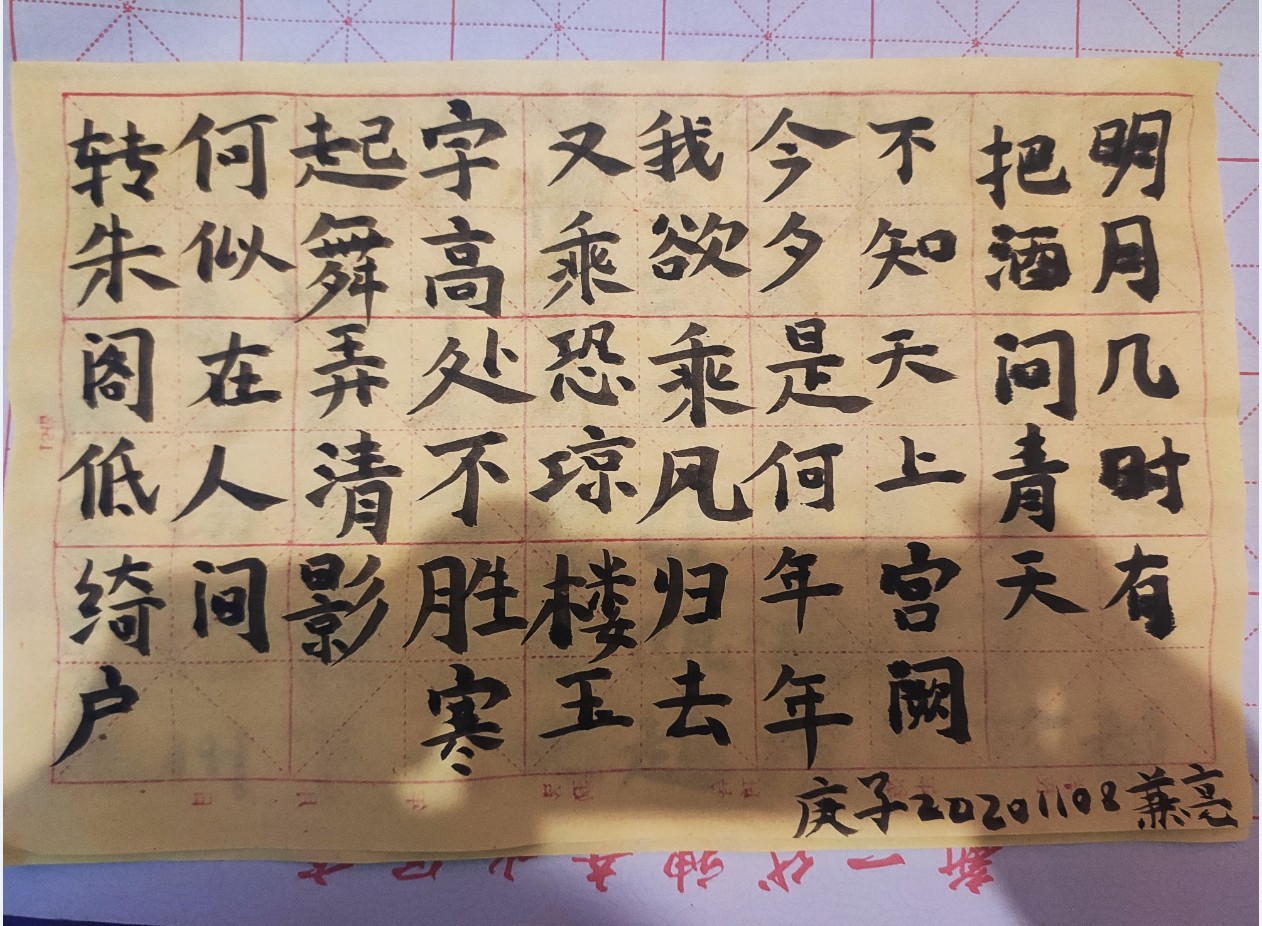 明月几时有
把酒问青天
不知天上宫阙
今夕是何年年
我欲乘风归去
又乘恐琼楼玉
字高处不胜寒
起舞弄清影
何似在人间
转朱阁低绮户
庚子20201108蒹亮